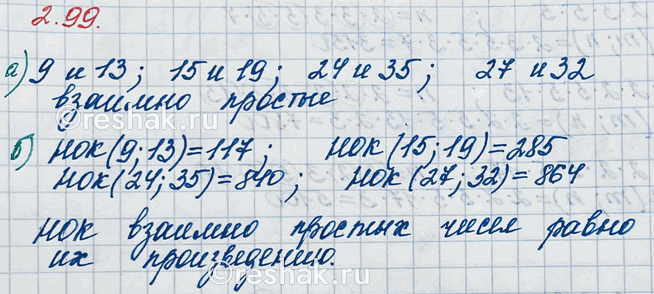 2.99.
а) 9 и 13; 15 и 19; 24 и 35; 27 и 32
взаимно простые
б) НОК(9; 13)=117; НОК(15; 19)=285
НОК(24; 35)=840; НОК(27; 32)=864
НОК взаимно простых чисел равно
их произведению.
reshak.ru
reshak.ru